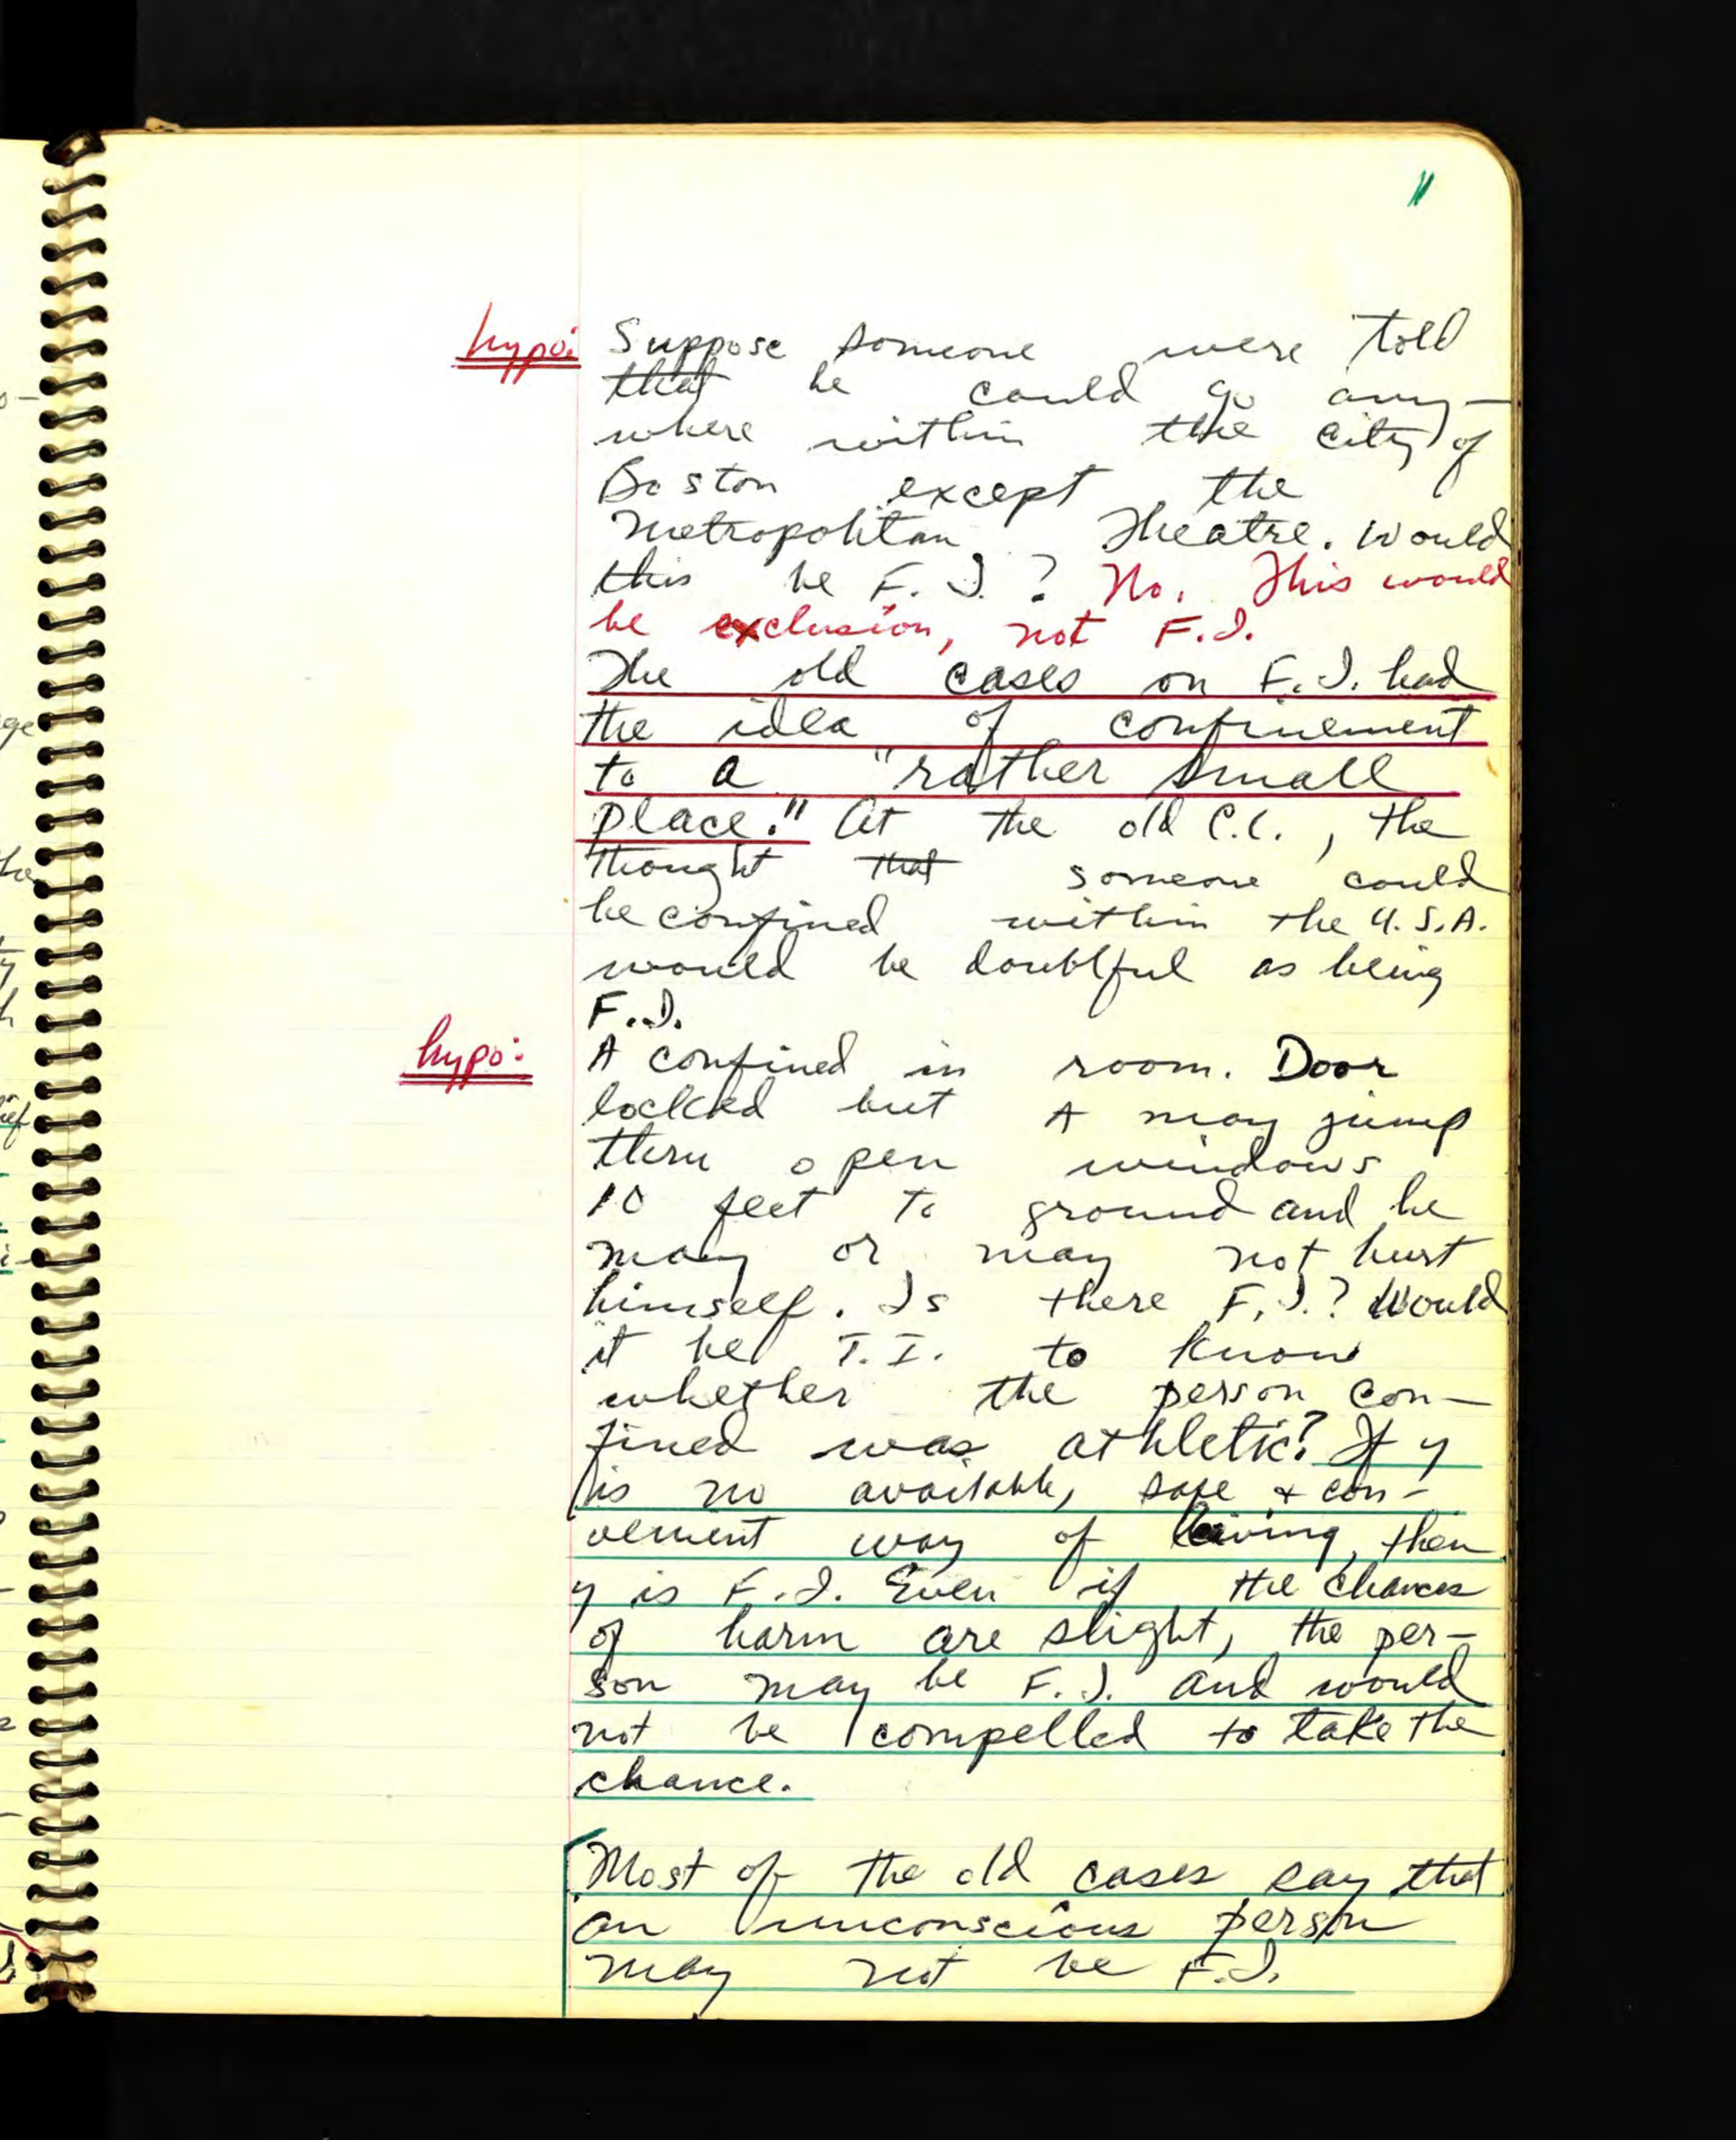 11
hypo: Suppose someone were told
that he could go any-
where within the city of
Boston except the
Metropolitan Theatre. Would
this be F.I.? No. This would
be exclusion, not F.I.
The old cases on F.I. had
the idea of confinement
to a "rather small
place." At the old C.L., the
thought that someone could
be confined within the U.S.A.
would be doubtful as being
F.I.
hypo: A confined in room. Door
locked but A may jump
thru open windows
10 feet to ground and he
may or may not hurt
himself. Is there F.I.? Would
it be T.I. to know
whether the person con-
fined was athletic? If y
is no available, safe + con-
venient way of leaving, then
y is F.I. Even if the chances
of harm are slight, the per-
son may be F.I. and would
not be compelled to take the
chance.
Most of the old cases say that
an unconscious person
may not be F.I.